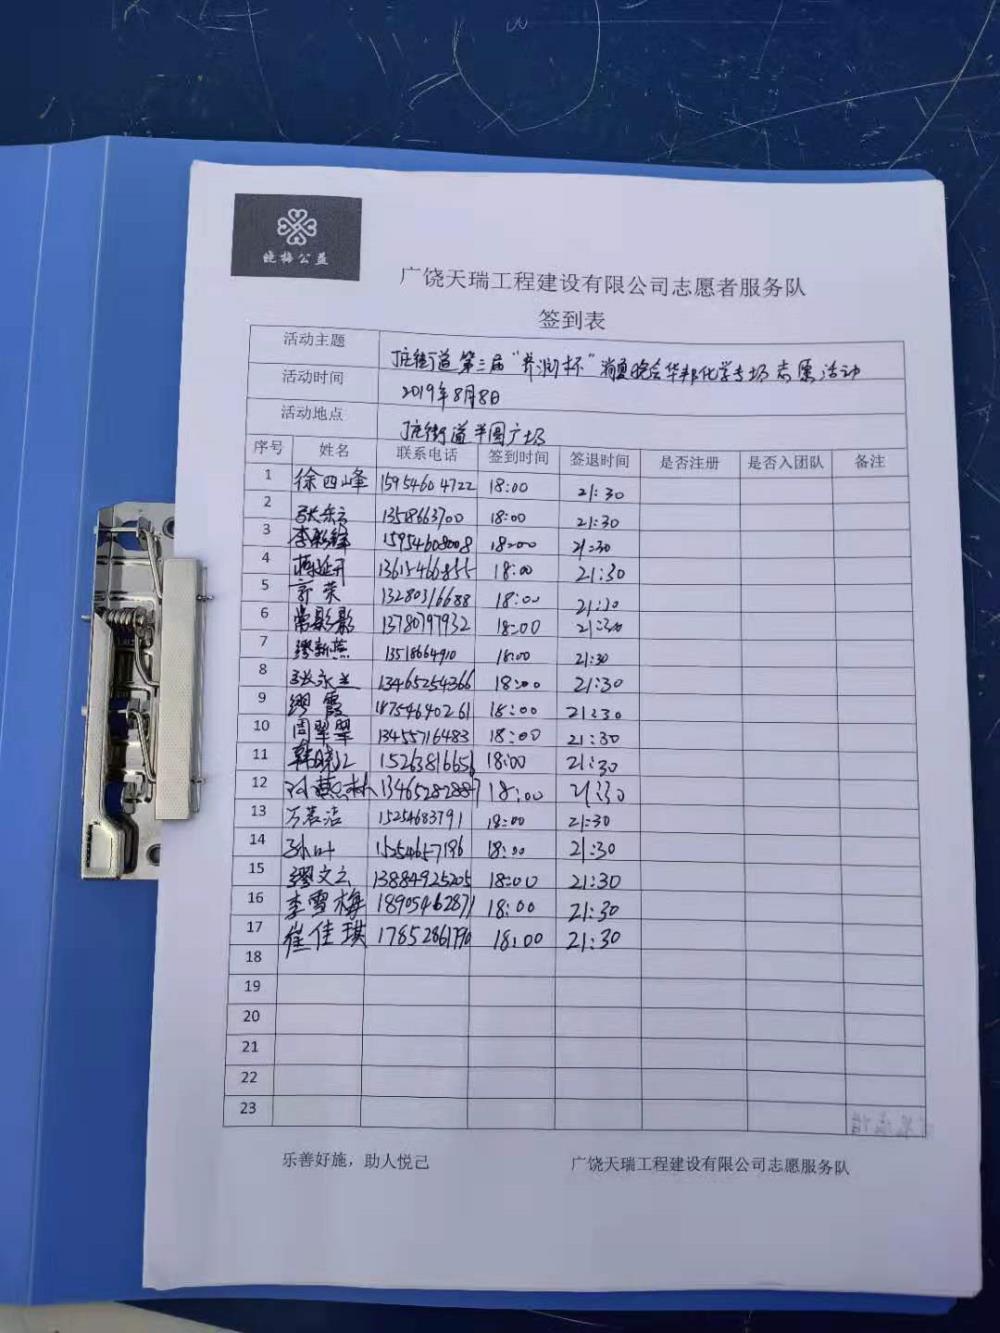 晓梅公益
广饶天瑞工程建设有限公司志愿者服务队
签到表
活动主题 丁庄街道第三届“养润杯”消夏晚会华邦化学专场志愿活动
活动时间 2019年8月8日
活动地点 丁庄街道半园广场
序号 姓名 联系电话 签到时间 签退时间 是否注册 是否入团队 备注
1 徐四峰 15954604722 18:00 21:30
2 13518663700 18:00 21:30
3 李彩锋 15954608008 18:00 21:30
4 蒋延开 13615466855 18:00 21:30
5 荣 13280316688 18:00 21:30
6 常影影 13780797932 18:00 21:30
7 缪新燕 13518664910 18:00 21:30
8 张永兰 13465254366 18:00 21:30
9 缪霞 18754640261 18:00 21:30
10 周翠翠 13455716483 18:00 21:30
11 韩晓 15263816656 18:00 21:30
12 林 13465282887 18:00 21:30
13 万若洁 15254683791 18:00 21:30
14 孙叶 15554657196 18:00 21:30
15 缪文云 13884925205 18:00 21:30
16 李雪梅 18905462871 18:00 21:30
17 崔佳琪 17852861790 18:00 21:30
18
19
20
21
22
23
乐善好施，助人悦己 广饶天瑞工程建设有限公司志愿服务队